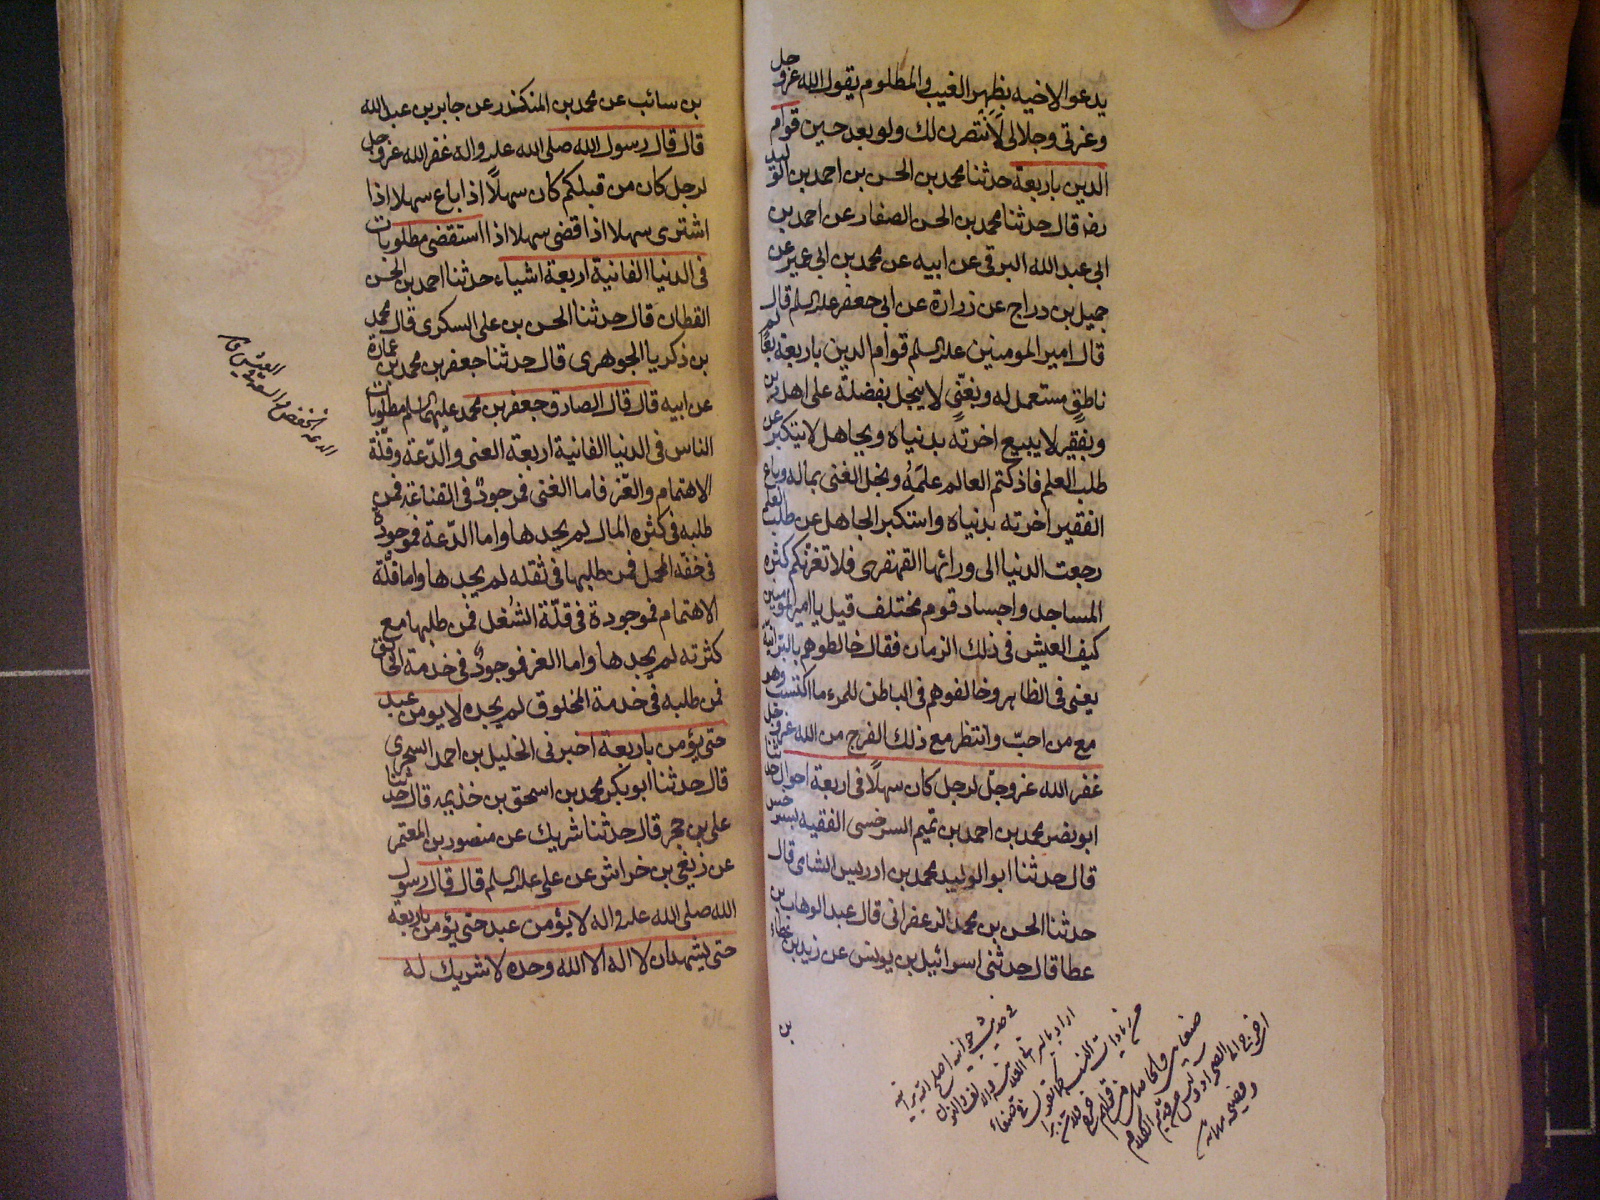 يدعو الاخيه بظهر الغيب والمظلوم يقول الله عز وجل
وعزتي وجلالي لانتصرن لك ولو بعد حين قوام
الدين باربعة حدثنا محمد بن الحسن بن احمد بن الوليد
رض قال حدثنا محمد بن الحسن الصفار عن احمد بن
ابي عبد الله البرقي عن ابيه عن محمد بن ابي عمير عن
جميل بن دراج عن زرارة عن ابي جعفر عليه السلم قال
قال امير المومنين عليه السلم قوام الدين باربعة بعالم
ناطق مستعمل له وبغني لا يبخل بفضله على اهل دين
وبفقير لا يبيع اخرته بدنياه وبجاهل لا يتكبر عن
طلب العلم فاذ كتم العالم علمه وبخل الغني بماله وباع
الفقير اخرته بدنياه واستكبر الجاهل عن طلب العلم
رجعت الدنيا الى ورائها القهقرى فلا تغرنكم كثرة
المساجد واجساد قوم مختلف قيل يا امير المومنين
كيف العيش في ذلك الزمان فقال خالطوهم بالبرانية
يعني في الظاهر وخالفوهم في الباطن للمرء ما اكتسب وهو
مع من احبّ وانتظر مع ذلك الفرج من الله عز وجل
غفر الله عز وجلّ لرجل كان سهلًا في اربعة احوال حدثنا
ابو نصر محمد بن احمد بن تميم السرخسي الفقيه بسرخس
قال حدثنا ابو الوليد محمد بن ادريس الشامي قال
حدثنا الحسن بن محمد الزعفراني قال عبد الوهاب بن
عطا قال حدثني اسرائيل بن يونس عن زيد بن عطاء
بن
بن سائب عن محمد بن المنكدر عن جابر بن عبد الله
قال قال رسول الله صلى الله عليه واله غفر الله عز وجل
لرجل كان من قبلكم كان سهلًا اذا باع سهلا اذا
اشترى سهلا اذا قضى سهلا اذا استقضى مطلوبات
في الدنيا الفانية اربعة اشياء حدثنا احمد بن الحسن
القطان قال حدثنا الحسن بن علي السكري قال محمد
بن زكريا الجوهري قال حدثنا جعفر بن محمد بن عمارة
عن ابيه قال قال الصادق جعفر بن محمد عليهما السلم مطلوبات
الناس في الدنيا الفانية اربعة الغنى والدّعة وقلّة
الاهتمام والعّز فاما الغنى فموجودٌ في القناعة فمن
طلبه في كثره المال لم يجدها واما الدّعة فموجودة
في خفة المحمل فمن طلبها في ثقله لم يجدها واما قلّة
الاهتمام فموجودة في قلّة الشُغل فمن طلبها مع
كثرته لم يجدها واما العز فموجودٌ في خدمة الخالق
فمن طلبه في خدمة المخلوق لم يجده لا يومن عبد
حتى يؤمن باربعة اخبرني الخليل بن احمد السجزي
قال حدثنا ابو بكر محمد بن اسحق بن خذيمه قال حدثنا
علي بن حجر قال حدثنا شريك عن منصور بن المعتمر
عن ربعي بن خراش عن علي عليه السلم قال قال رسول
الله صلى الله عليه واله لا يؤمن عبد حتى يؤمن باربعة
حتى يشهد ان لا اله الا الله وحده لا شريك له
الدعة الخفض والسعة في العيش